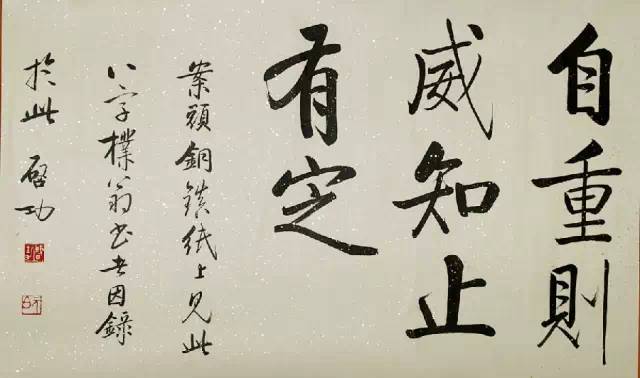 自重則
威知止
有定
案頭銅鎮紙上見此
八字樸翁书者因錄
於此 啓功